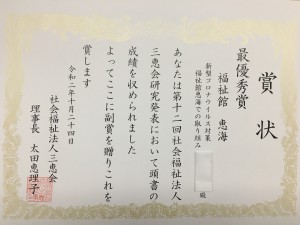 賞状
最優秀賞
福祉館 恵海
新型コロナウイルス対策
福祉館恵海での取り組み
殿
あなたは第十二回社会福祉法人
三恵会研究発表において頭書の
成績を収められました
よってここに副賞を贈りこれを
賞します
令和二年十月二十四日
社会福祉法人三恵会
理事長 太田恵理子